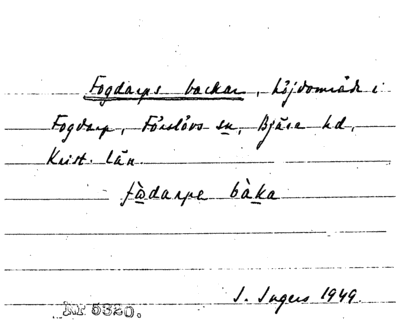 Fogdarps backar, höjdområde i
Fogdarp, Förslövs sn, Bjäre hd,
Krist. län.
fòdarpe bàka
I. Ingers 1949.
Nr 5320.